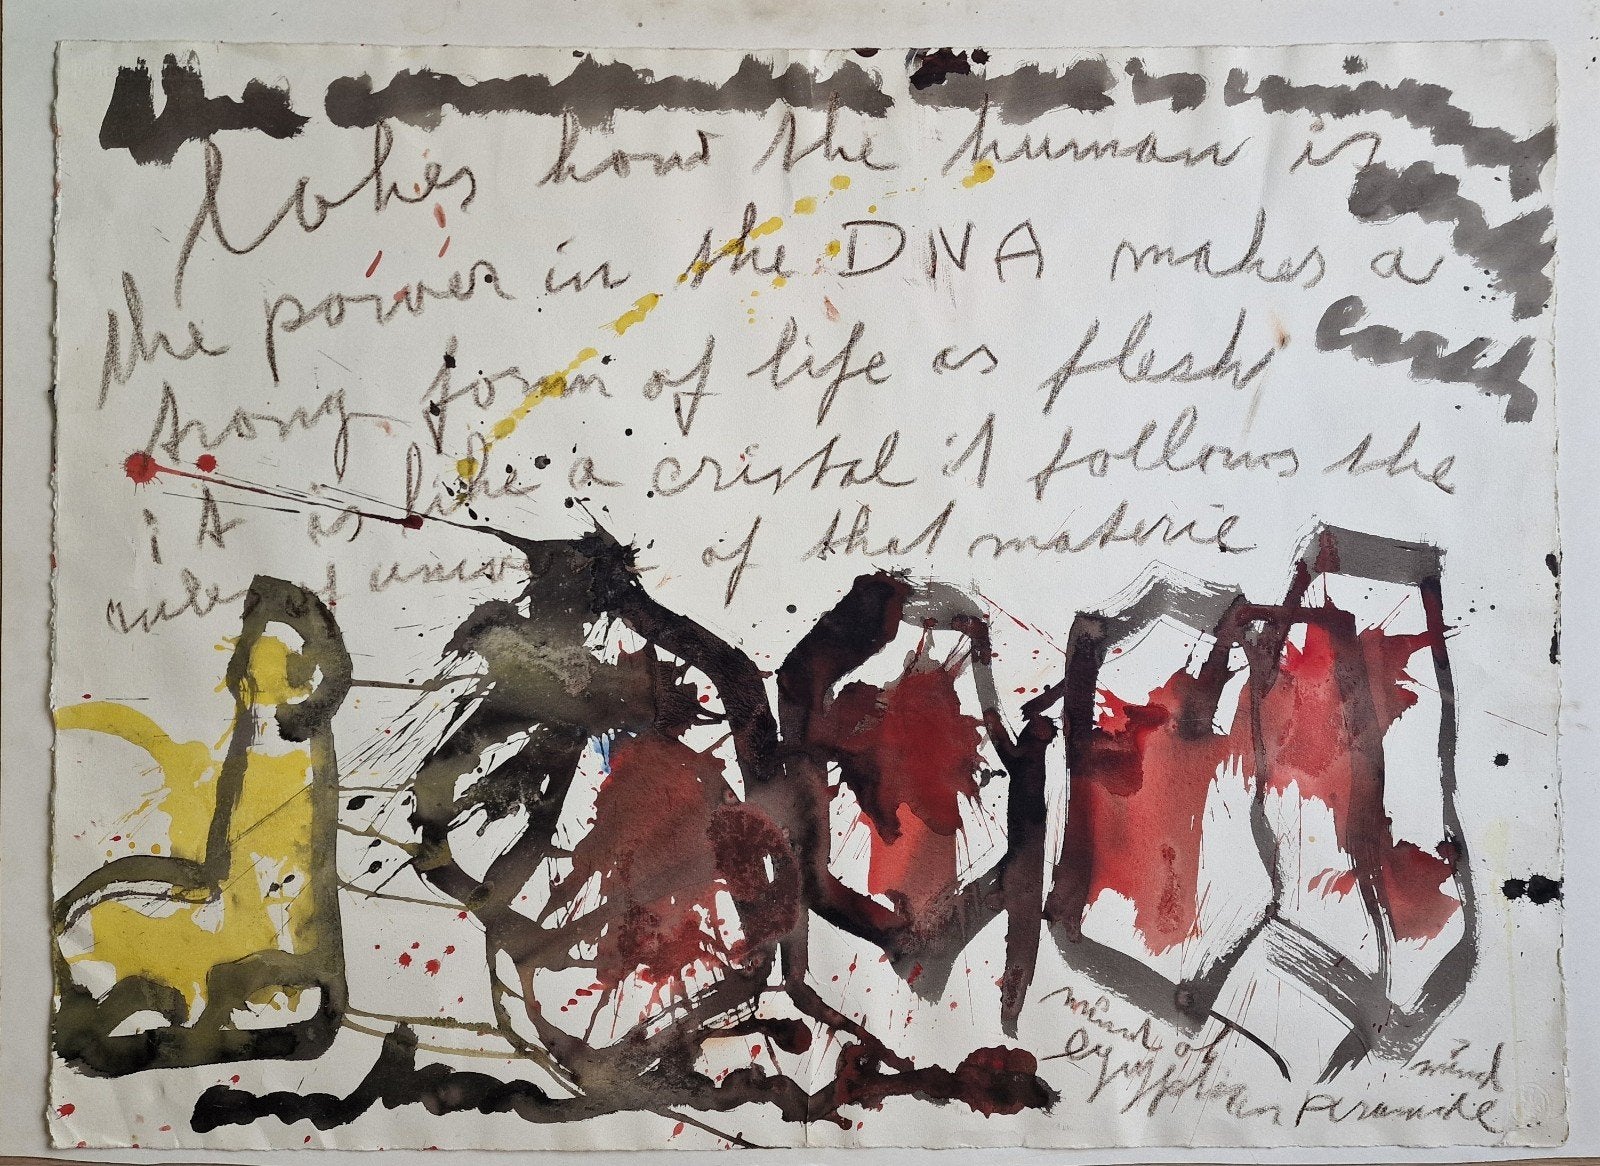 the is coming
takes how the human is
the power in the DNA makes a
earth
strong form of life as flesh
it is like a cristal it follows the
rules of of that materie
mind of
egyptien Piramide
mind